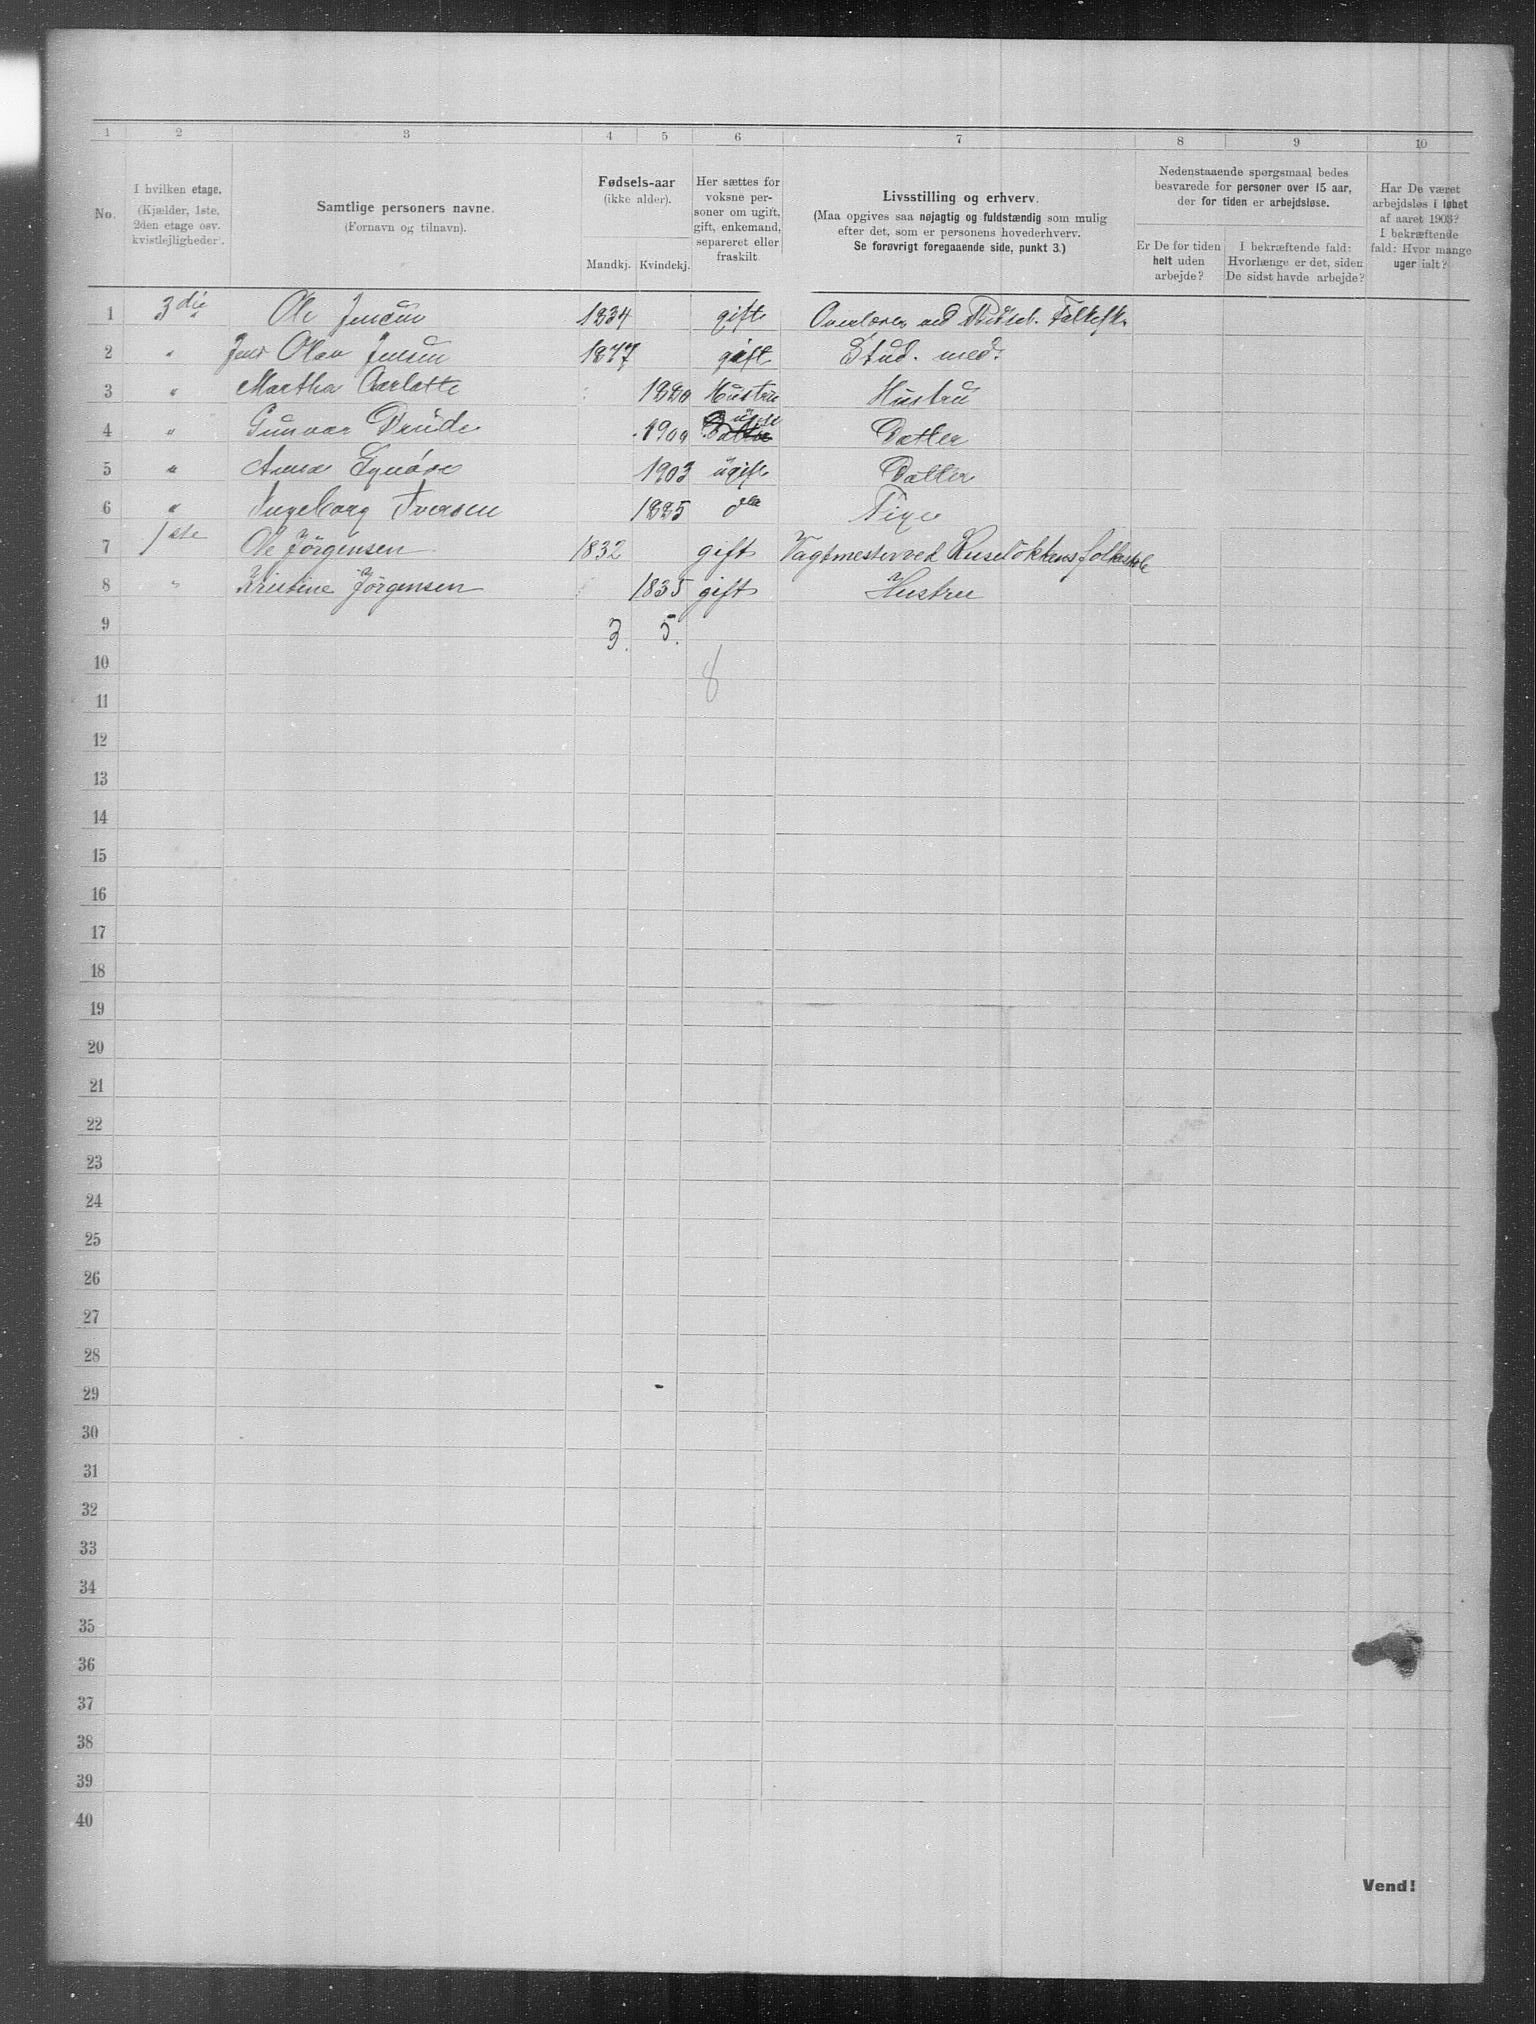 1 2 3 4 5 6 7 8 9 10
No.
I hvilken etage.
(Kjælder, 1ste,
2den etage osv.
kvistlejligheder).
Samtlige personers navne.
(Fornavn og tilnavn).
Fødsels-aar
(ikke alder).
Mandkj. Kvindekj.
Her sættes for
voksne per-
soner om ugift,
gift, enkemand,
separeret eller
fraskilt
Livsstilling og erhverv.
(Maa opgives saa nøjagtig og fuldstændig som mulig
efter det, som er personens hovederhverv.
Se forøvrigt foregaaende side, punkt 3.)
Nedenstaaende spørgsmaal bedes
besvarede for personer over 15 aar,
der for tiden er arbejdsløse.
Er De for tiden
helt uden
arbejde?
I bekræftende fald:
Hvorlænge er det, siden
De sidst havde arbejde?
Har De været
arbejdsløs i løbet
af aaret 1903?
I bekræftende
fald: Hvor mange
uger ialt?
1 3die Ole Jensen 1834 gift Overlærer ved Folkesk.
2 " Jens Olav Jensen 1877 gift Stud. med.
3 " Martha 1880 Hustru Hustru
4 " Gunvor Drude 1900 ugift Datter
5 " Anna 1903 ugift Datter
6 " Ingeborg Iversen 1885 do Pige
7 1ste Ole Jörgensen 1832 gift Vagtmester ved Ruselökkens folkeskole
8 " Kristine Jörgensen 1835 gift Hustru
9 3. 5.
10 8
11
12
13
14
15
16
17
18
19
20
21
22
23
24
25
26
27
28
29
30
31
32
33
34
35
36
37
38
39
40
Vend!